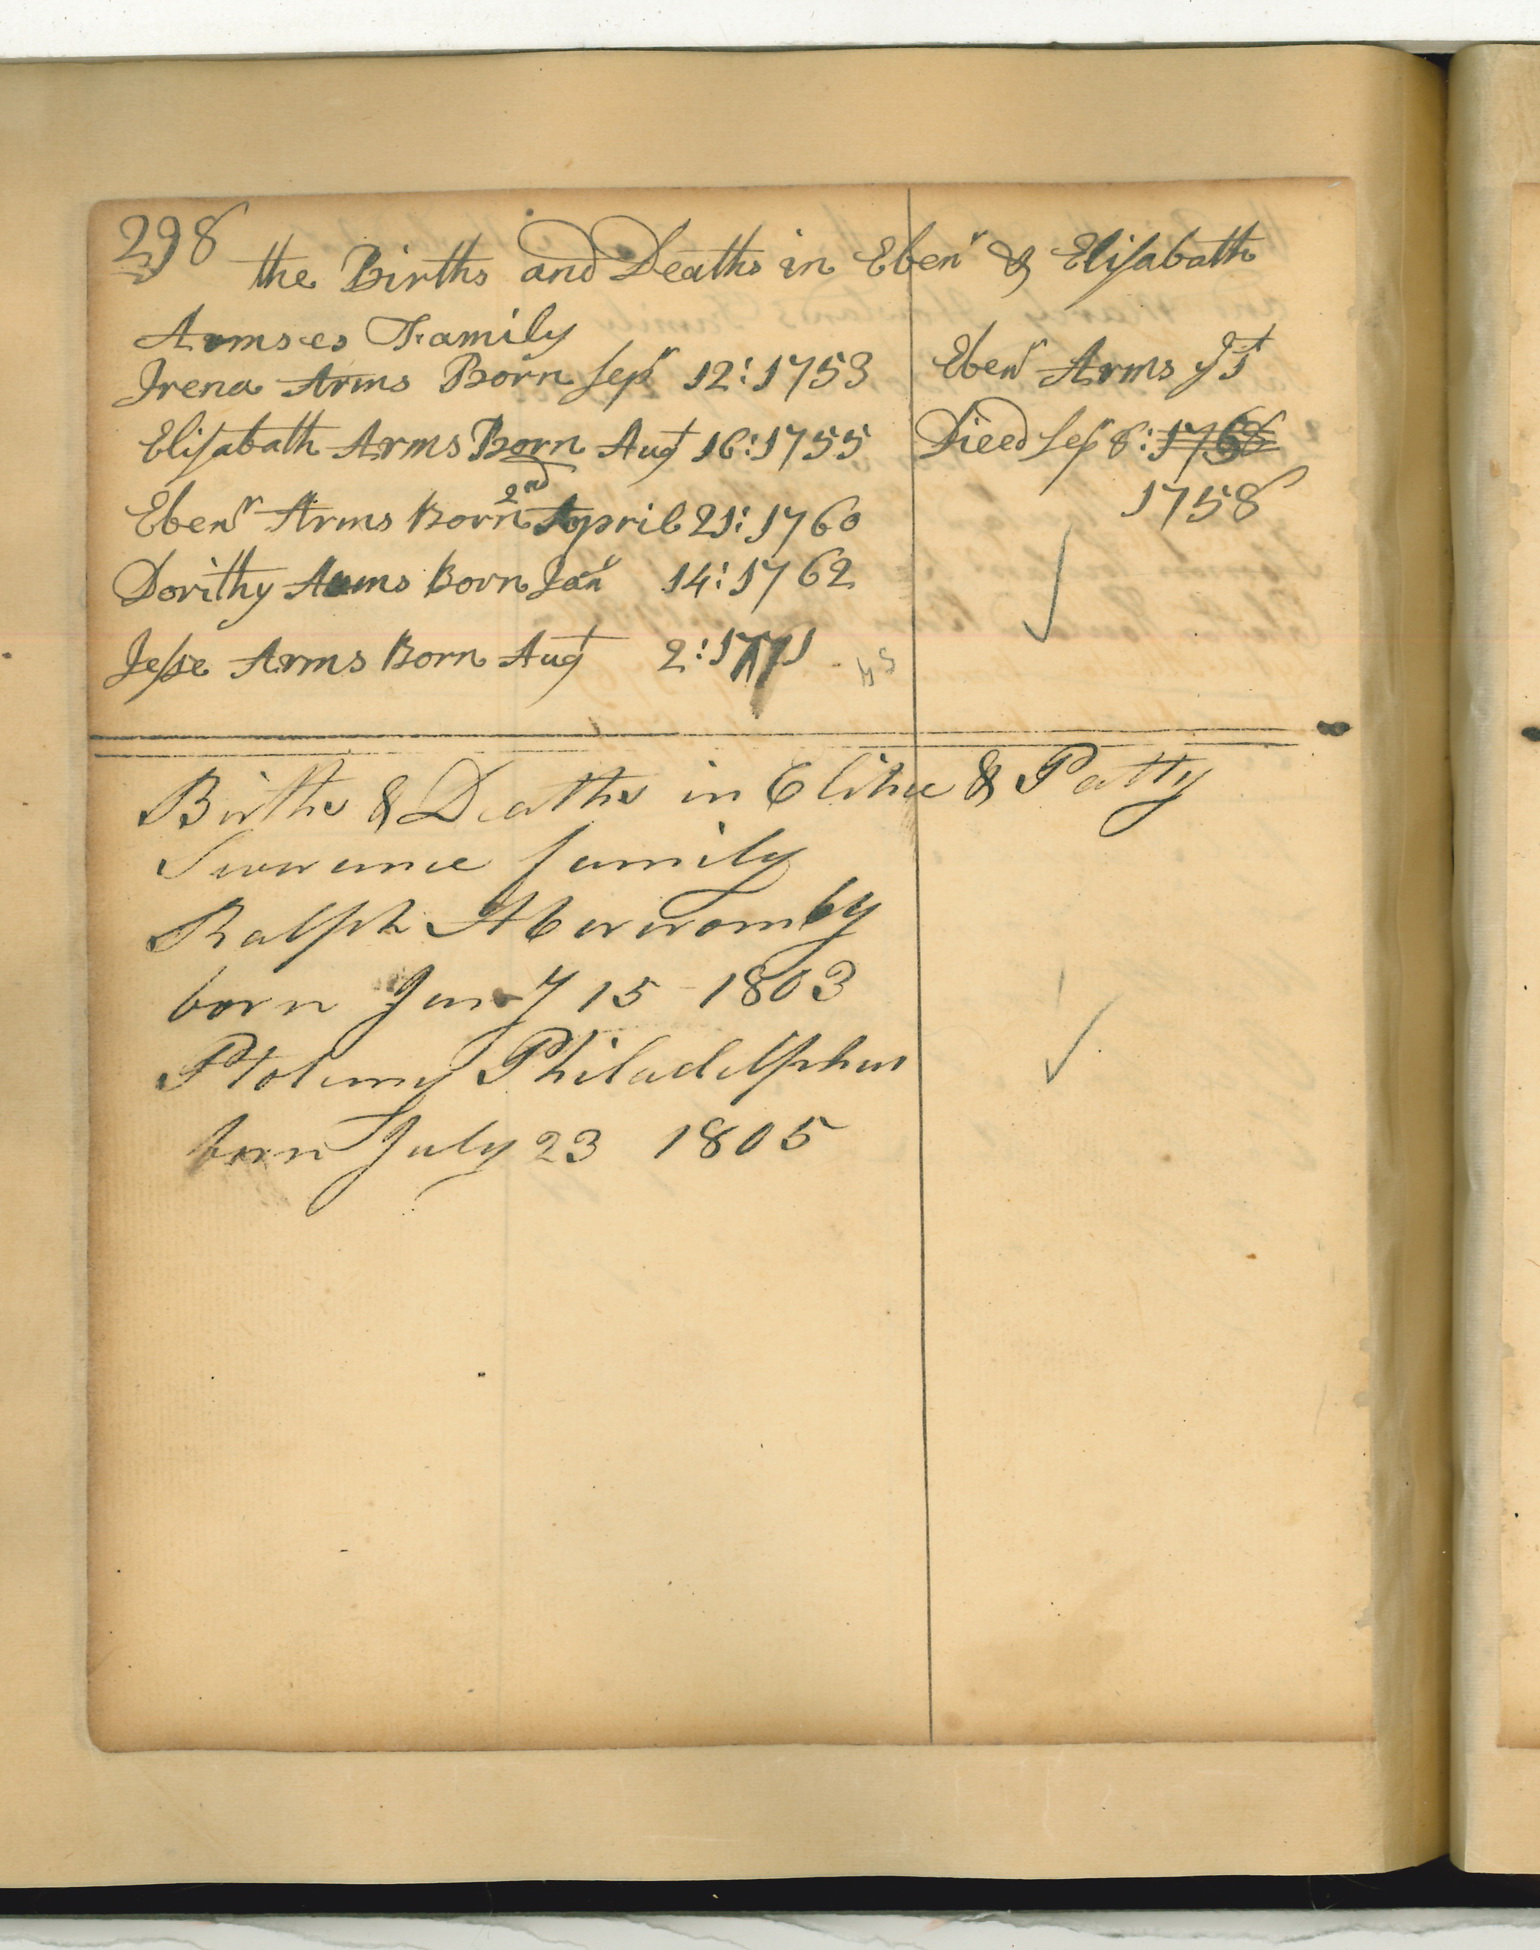 298
the Births and Deaths in Ebenr & Elisabath
Armses Family
Irena Arms Born Sepr 12: 1753
Ebenr Arms ye 1st
Elisabath Arms Born Augt 16: 1755
Dieed Sepr 8: 1768
1758
Ebenr Arms 2nd Born April 21: 1760
Dorithy Arms Born Janr 14: 1762
Jesse Arms Born Augt 2: 1771
Births & Deaths in Elihu & Patty
Severance family
Ralph Abercromby
born Jany 15 1803
Ptolemy Philadelphus
born July 23 1805